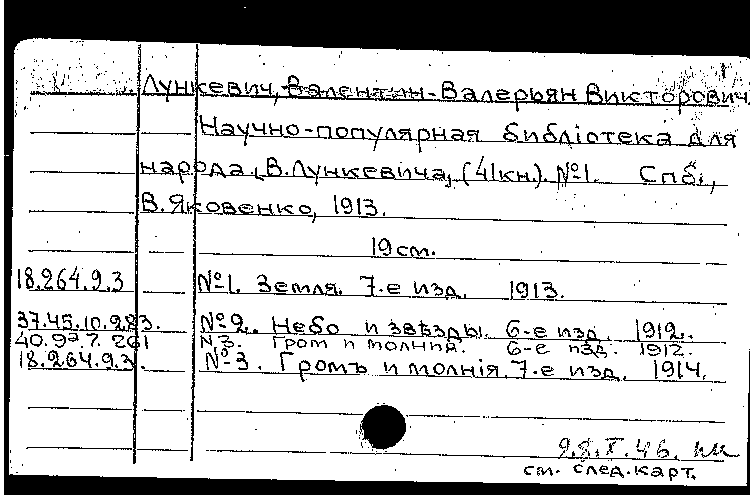 Лункевич, Валентин-Валерьян Викторович.
Научно-популярная библіотека для
народа. В. Лункевича, (41кн.). №1. Спб.,
В. Яковенко, 1913.
19 см.
18.264.9.3 №1. Земля. 7-е изд. 1913.
37.45.10.283. №2. Небо и звѣзды. 6-е изд. 1912.
40.92.7.261 N.3. Гром и молния. 6-е изд. 1912.
18.264.9.3. №3. Громъ и молнія. 7-е изд. 1914.
см. след. карт.